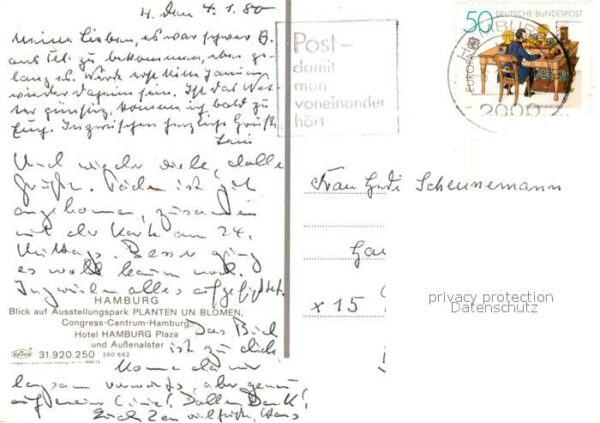 H. den 4.1.80
Meine Lieben, es war schwer B.
ans Tel. zu bekommen, aber ge-
lang es. Werde erst Mitte Januar
wieder daheim sein. Ist das Wet-
ter günstig, komme ich bald zu
Euch. Inzwischen herzliche Grüße
Und wieder viele, dolle
Grüße. Päckchen ist gut
angekommen, zusammen
mit der Karte am 24.
Mittags. Besser ging
es wohl kaum noch.
Inzwischen alles aufgefuttert.
Das Buch
ist zu dick
Komme da nur
langsam vorwärts, aber genau
auf meiner Linie! Dollen Dank!
Euch Zwei viel Grüße, Hans
HAMBURG
Blick auf Ausstellungspark PLANTEN UN BLOMEN,
Congress-Centrum-Hamburg,
Hotel HAMBURG Plaza
und Außenalster
31.920.250 260 662
Post-
damit
man
voneinander
hört
50 DEUTSCHE BUNDESPOST
EUROPA
HAMBURG
2000
Frau Gerdi Scheunemann
x 15
privacy protection
Datenschutz